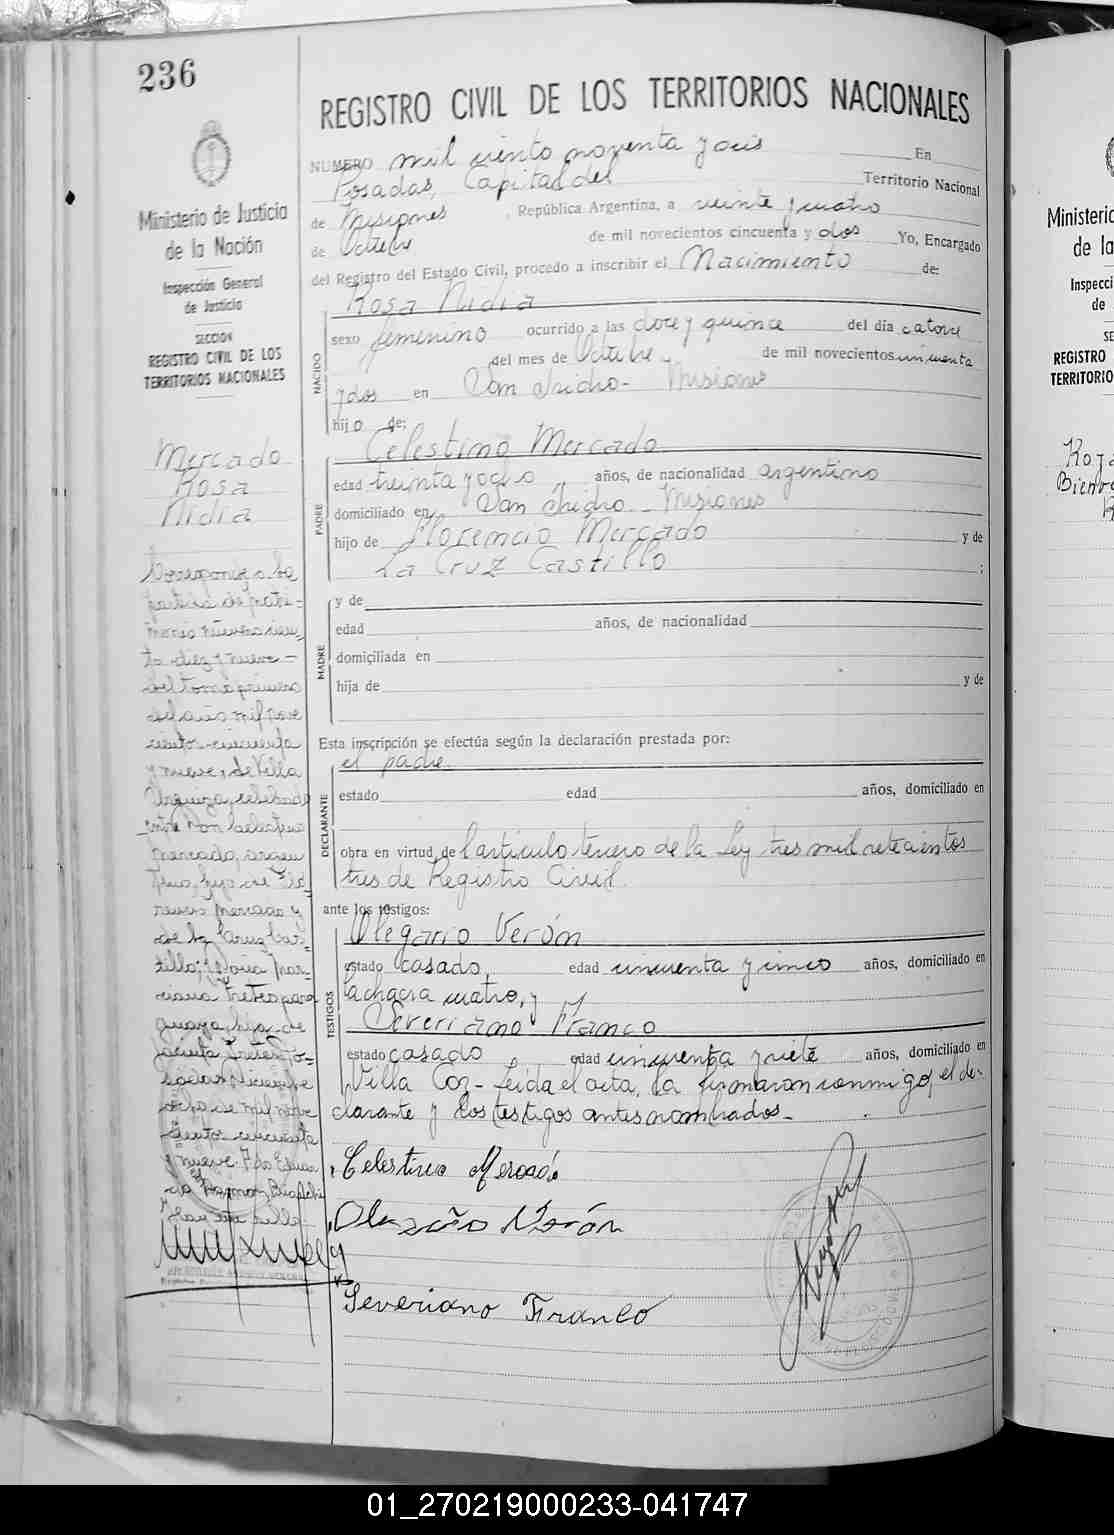 236
Ministerio de Justicia
de la Nación
Inspección General
de Justicia
SECCION
REGISTRO CIVIL DE LOS
TERRITORIOS NACIONALES
Mercado
Rosa
Nidia
REGISTRO CIVIL DE LOS TERRITORIOS NACIONALES
NUMERO mil ciento noventa y seis En
Posadas, Capital del Territorio Nacional
de Misiones, República Argentina, a veinte y cuatro
de Octubre de mil novecientos cincuenta y dos Yo, Encargado
del Registro del Estado Civil, procedo a inscribir el Nacimiento de:
Rosa Nidia
NACIDO
sexo femenino ocurrido a las doce y quince del día catorce
del mes de Octubre de mil novecientos cincuenta
y dos en San Isidro - Misiones
hijo de:
PADRE
Celestino Mercado
edad treinta y ocho años, de nacionalidad argentino
domiciliado en San Isidro - Misiones
hijo de Florencio Mercado y de
La Cruz Castillo ;
MADRE
y de
edad años, de nacionalidad
domiciliada en
hija de y de
Esta inscripción se efectúa según la declaración prestada por:
el padre.
DECLARANTE
estado edad años, domiciliado en
obra en virtud de l artículo tercero de la Ley tres mil setecientos
tres de Registro Civil.
ante los testigos:
TESTIGOS
Olegario Verón
estado casado, edad cincuenta y cinco años, domiciliado en
la chacra cuatro, y
Severiano Franco
estado casado edad cincuenta y siete años, domiciliado en
Villa Coz - Leída el acta, la firmaron conmigo, el de-
clarante y los testigos antes nombrados -
Celestino Mercado
Olegario Verón
Severiano Franco
Corresponde a la
partida de matri-
monio número cien-
to diez y nueve -
del tomo primero
del año mil nove
cientos cincuenta
y nueve, de Villa
Urquiza, celebrado
entre Don Celestino
Mercado, argen
tino, hijo de Flo-
rencio Mercado y
de la Cruz Cas-
tillo; y Doña Mar-
Ministerio
de la
Inspecci
de
SE
REGISTRO
TERRITORIO
01_270219000233-041747